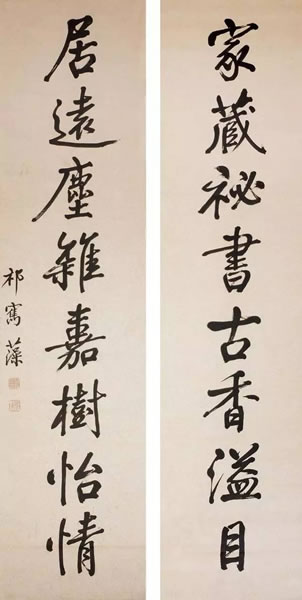 家藏祕書古香溢目
居遠塵雜嘉樹怡情
祁寯藻